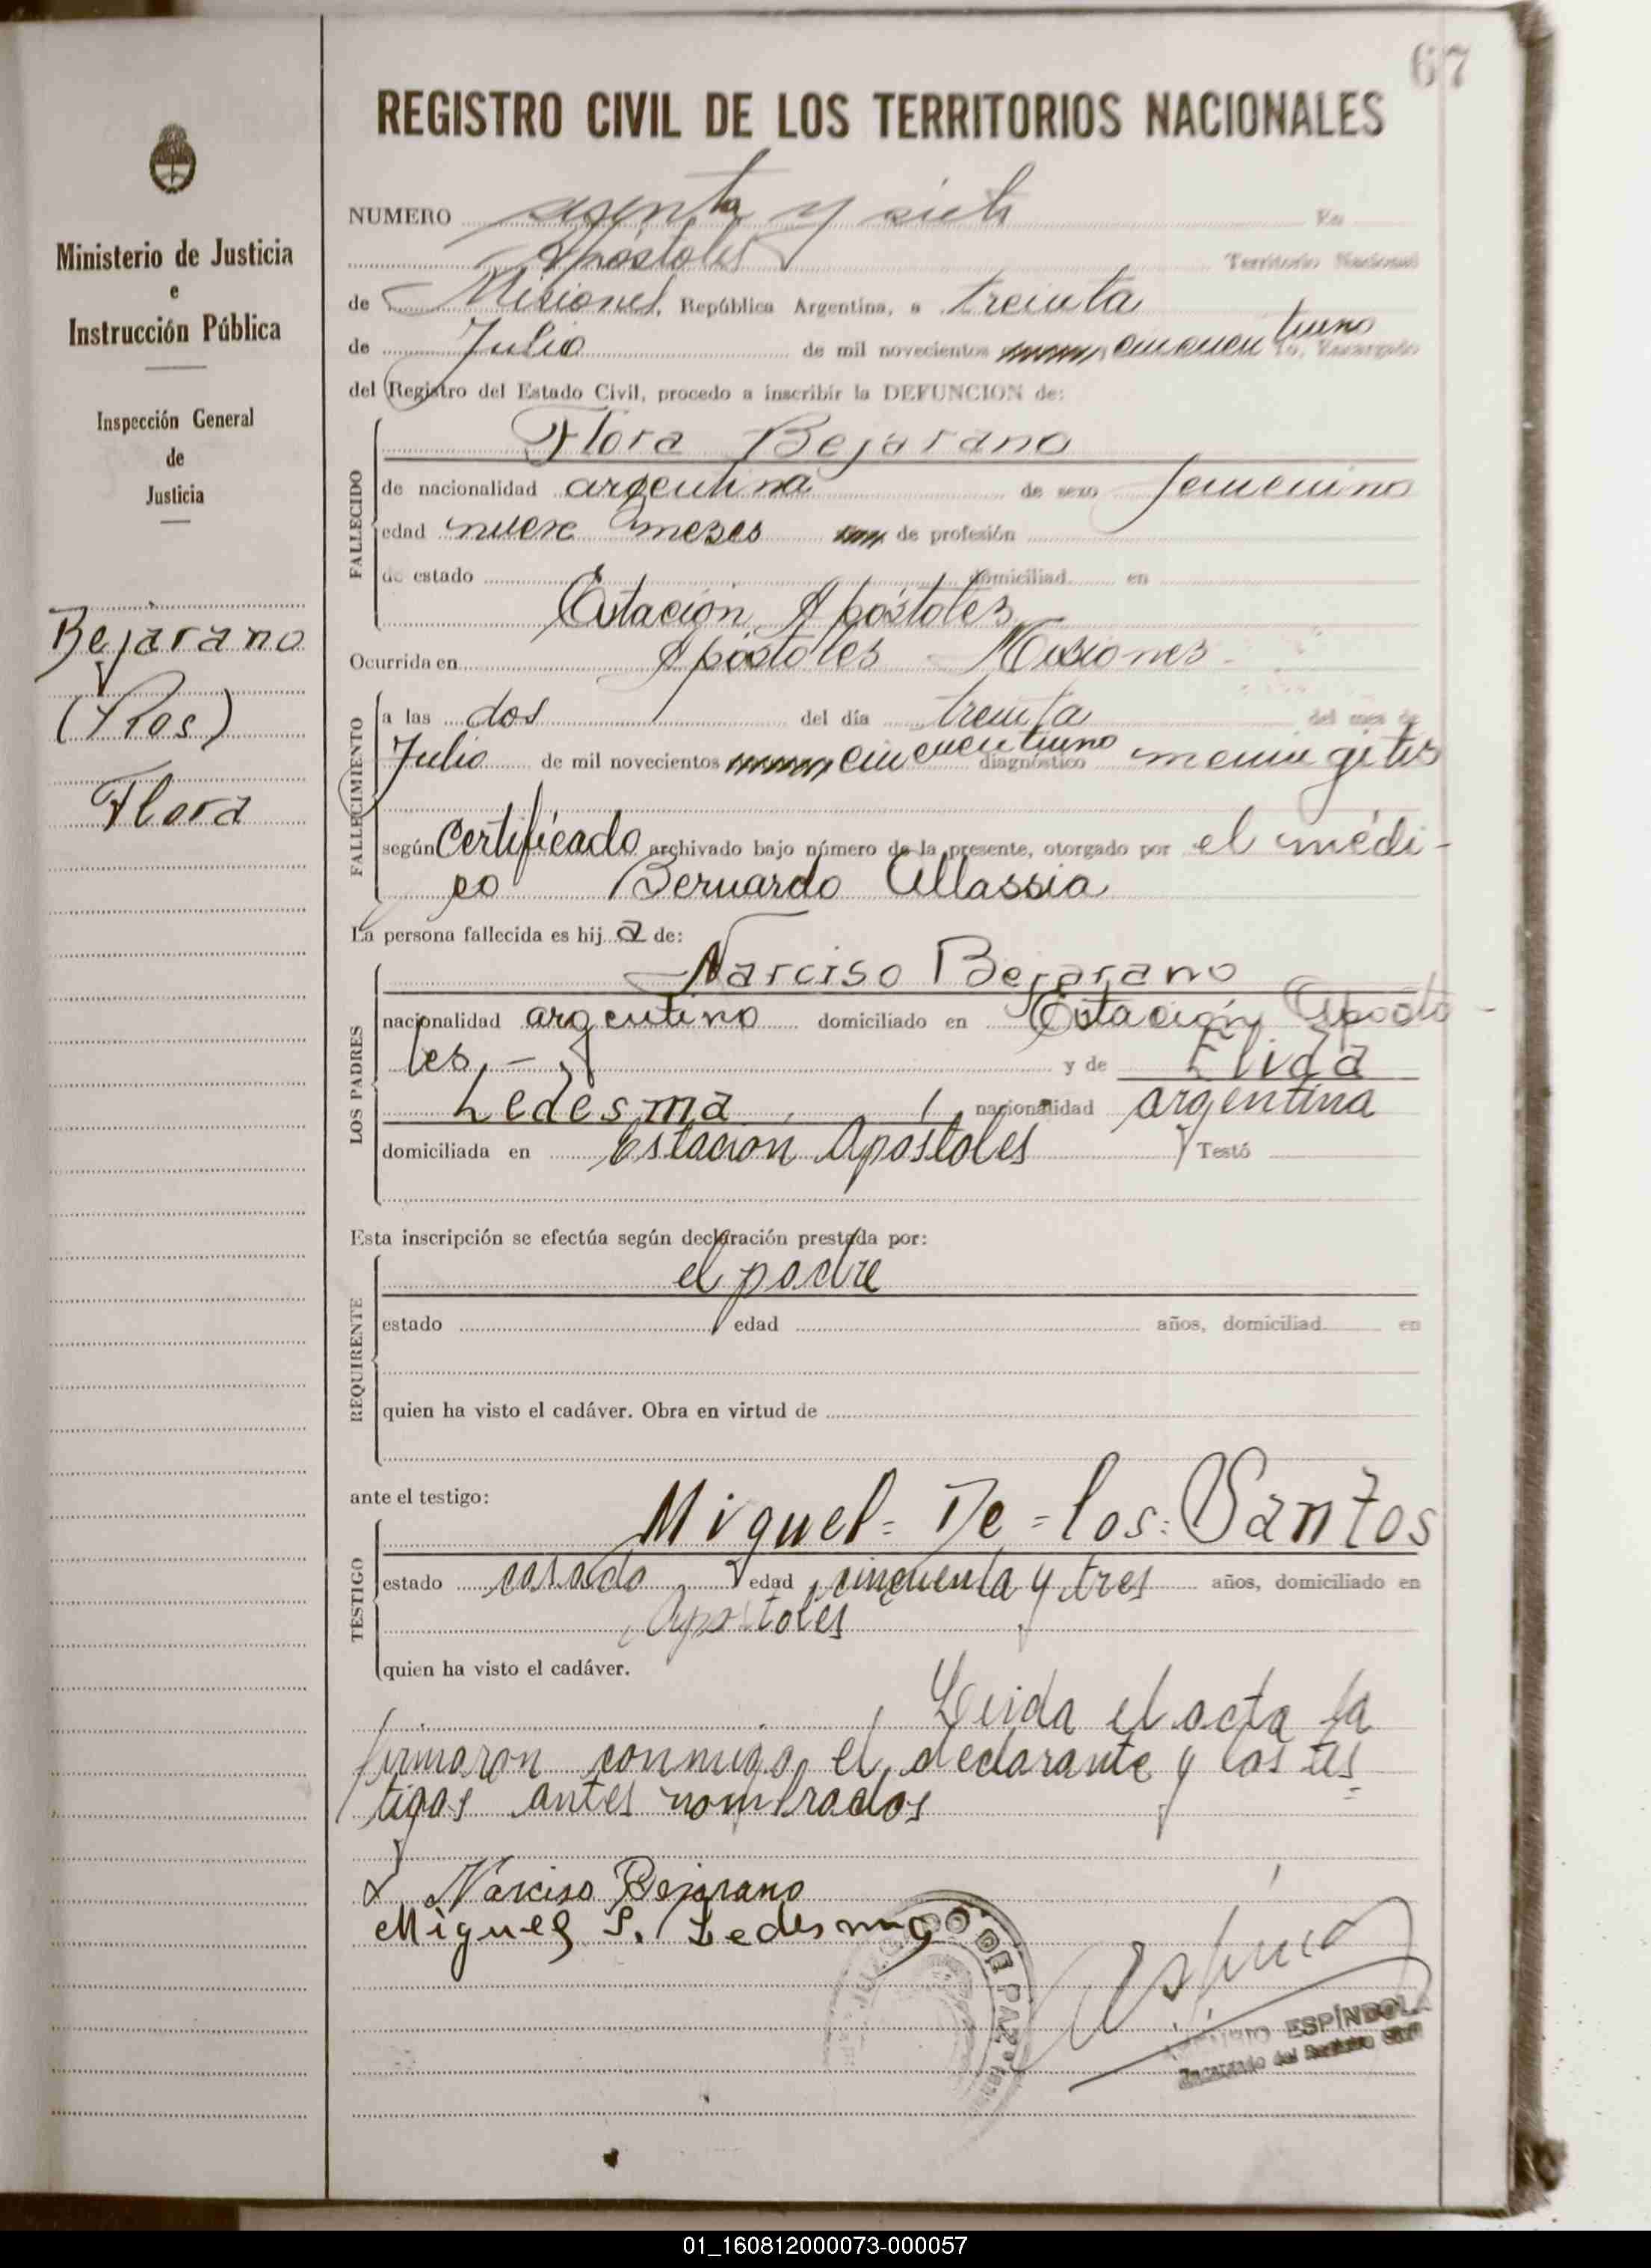 67
REGISTRO CIVIL DE LOS TERRITORIOS NACIONALES
Ministerio de Justicia
e
Instrucción Pública
Inspección General
de
Justicia
Bejarano
Flora
NUMERO sesenta y siete En
Apóstoles Territorio Nacional
de Misiones, República Argentina, a treinta
de Julio de mil novecientos cincuentiuno Yo, Encargado
del Registro del Estado Civil, procedo a inscribir la DEFUNCION de:
FALLECIDO
Flora Bejarano
de nacionalidad argentina de sexo femenino
edad nueve meses de profesión
de estado domiciliad en
Estación Apóstoles
Ocurrida en Apóstoles - Misiones -
FALLECIMIENTO
a las dos del día treinta del mes de
Julio de mil novecientos cincuentiuno diagnóstico meningitis
según Certificado archivado bajo número de la presente, otorgado por el médi-
co Bernardo Allassia
La persona fallecida es hij a de:
LOS PADRES
Narciso Bejarano
nacionalidad argentino domiciliado en Estación Aposto-
les, - y de Elida
Ledesma, nacionalidad argentina
domiciliada en Estacion Apostoles Testó
Esta inscripción se efectúa según declaración prestada por:
REQUIRENTE
el padre
estado edad años, domiciliad en
quien ha visto el cadáver. Obra en virtud de
ante el testigo:
TESTIGO
Miguel = De = los = Santos
estado casado edad cincuenta y tres años, domiciliado en
Apostoles
quien ha visto el cadáver.
Leida el acta la
firmaron conmigo el declarante y los tes
=
tigos antes nombrados
x Narciso Bejarano
Miguel S. Ledesma
JUZGADO DE PAZ
ESPÍNDOLA
Encargado del Registro Civil
01_160812000073-000057